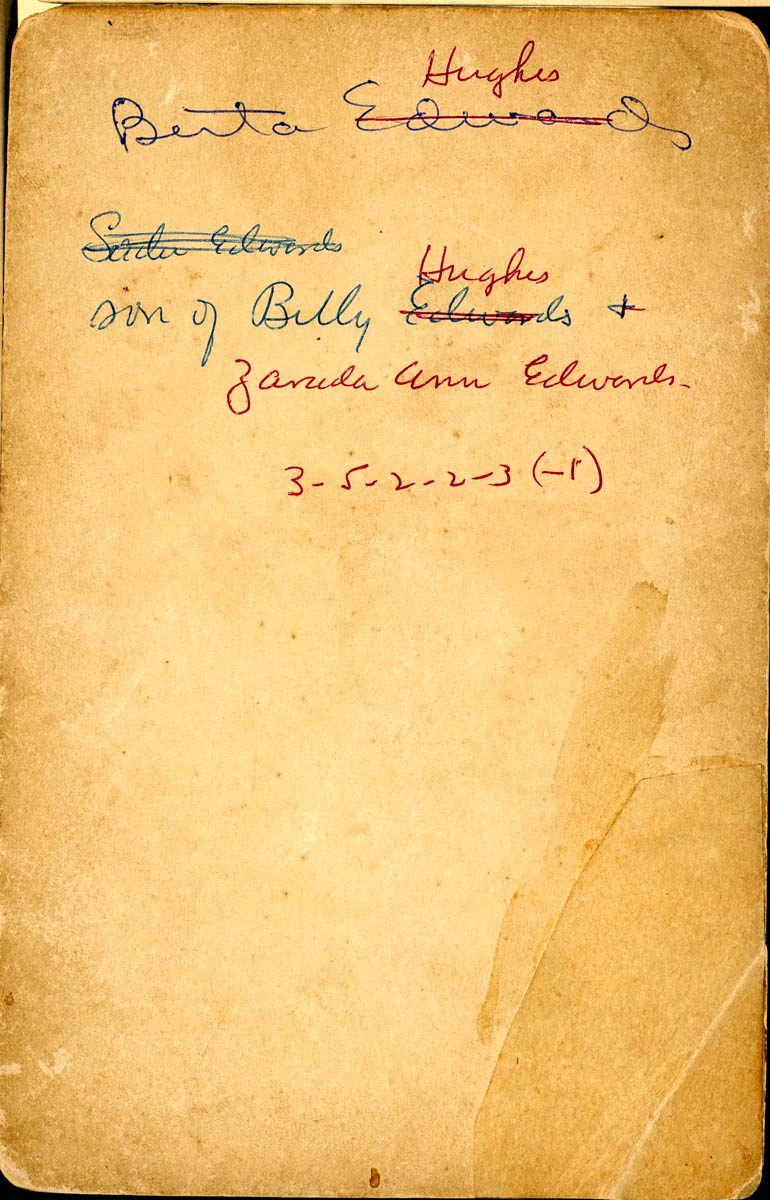 Hughes
Berta Edwards
Edwards
Hughes
son of Billy Edwards +
Zarada Ann Edwards-
3-5-2-2-3 (-1)